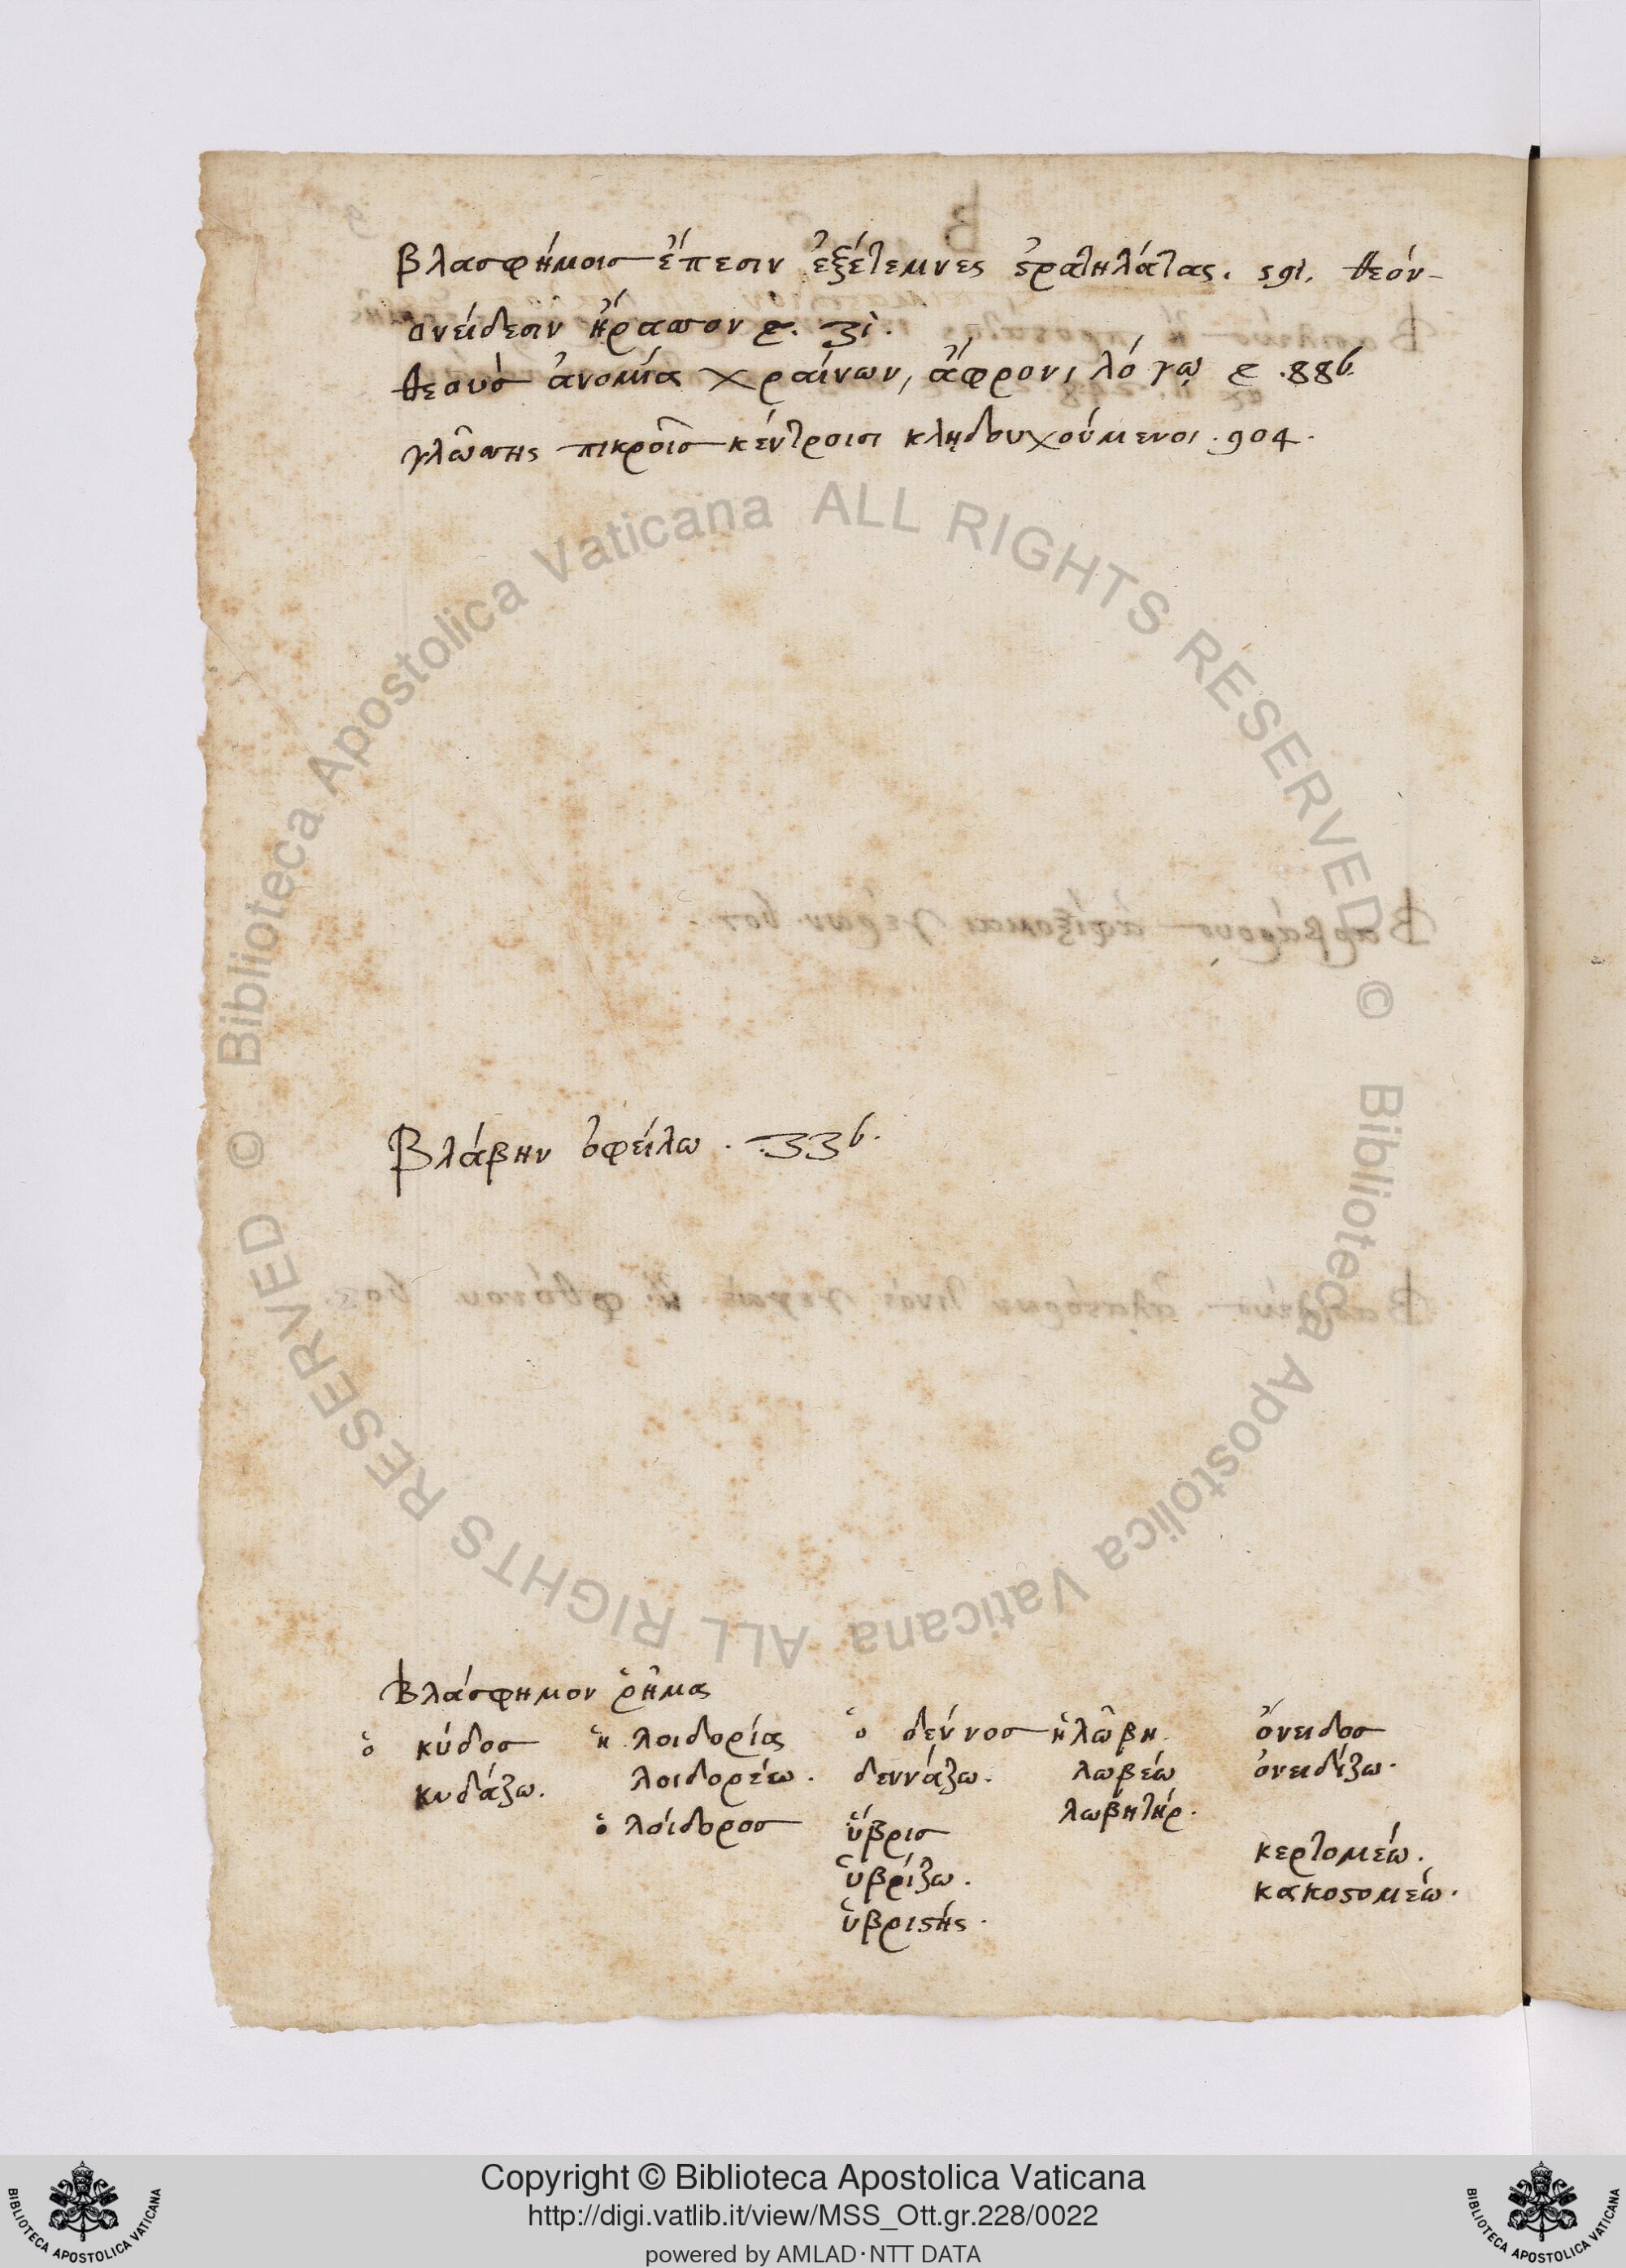 βλασφήμοις ἔπεσιν ἐξέτεμνες
θεόν-
ὀνείδεσιν ἤρασσον
θεοὺς ἀνομία χραίνων, ἄφρονι λόγῳ 886.
γλώσσης πικροῖς κέντροισι κλῃδουχούμενοι. 904.
Βλάβην ὀφείλω. 33b.
Βλάσφημον ῥῆμα
ὁ κύδος ἡ λοιδορία ὁ δέννος ἡ λώβη. ὄνειδος
κυδάζω. λοιδορέω. δεννάζω. λωβέω ὀνειδίζω.
ὁ λοίδορος ὕβρις λωβητήρ.
ὑβρίζω. κερτομέω.
ὑβριστής. κακοστομέω.
Biblioteca Apostolica Vaticana ALL RIGHTS RESERVED ©
Biblioteca Apostolica Vaticana ALL RIGHTS RESERVED ©
Copyright © Biblioteca Apostolica Vaticana
http://digi.vatlib.it/view/MSS_Ott.gr.228/0022
powered by AMLAD·NTT DATA
BIBLIOTECA APOSTOLICA VATICANA
BIBLIOTECA APOSTOLICA VATICANA